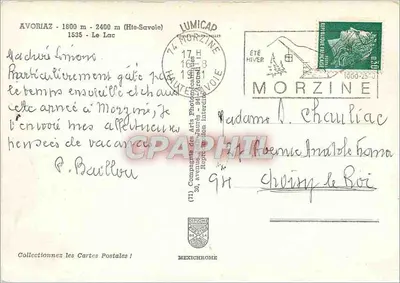 AVORIAZ - 1800 m - 2400 m (Hte-Savoie)
1535 - Le Lac
LUMICAP
74 MORZINE
17 H
HAUTE SAVOIE
ÉTÉ
HIVER
MORZINE
Particulièrement gâtée par
le temps ensoleillé et chaud
cette année à Morzine, je
t'envoie mes affectueuses
pensées de vacances
P. Baillou
Madame S. Chauliac
Avenue Anatole France
94 Choisy le Roi
(II) Compagnie des Arts Photomécaniques
CPARAMA.COM
Collectionnez les Cartes Postales !
MEXICHROME